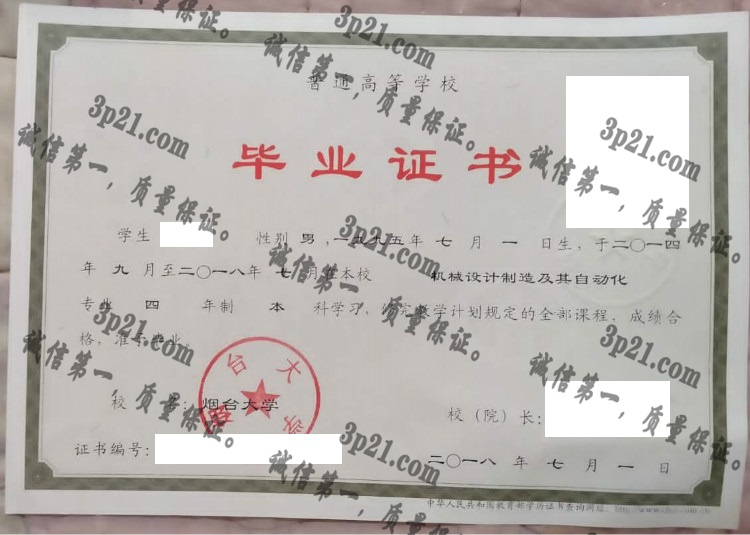 普通高等学校
毕业证书
学生 性别 男 ,一九九五年 七 月 一 日生, 于二〇一四
年 九 月至二〇一八年 七 月在本校 机械设计制造及其自动化
专业 四 年制 本 科学习, 完教学计划规定的全部课程, 成绩合
格, 准予毕业。
校 名: 烟台大学
校（院）长:
证书编号:
二〇一八 年 七 月 一 日
中华人民共和国教育部学历证书查询网址:
烟台大学
3p21.com
诚信第一，质量保证。
3p21.com
诚信第一，质量保证。
3p21.com
诚信第一，质量保证。
3p21.com
诚信第一，质量保证。
3p21.com
诚信第一，质量保证。
3p21.com
诚信第一，质量保证。
3p21.com
诚信第一，质量